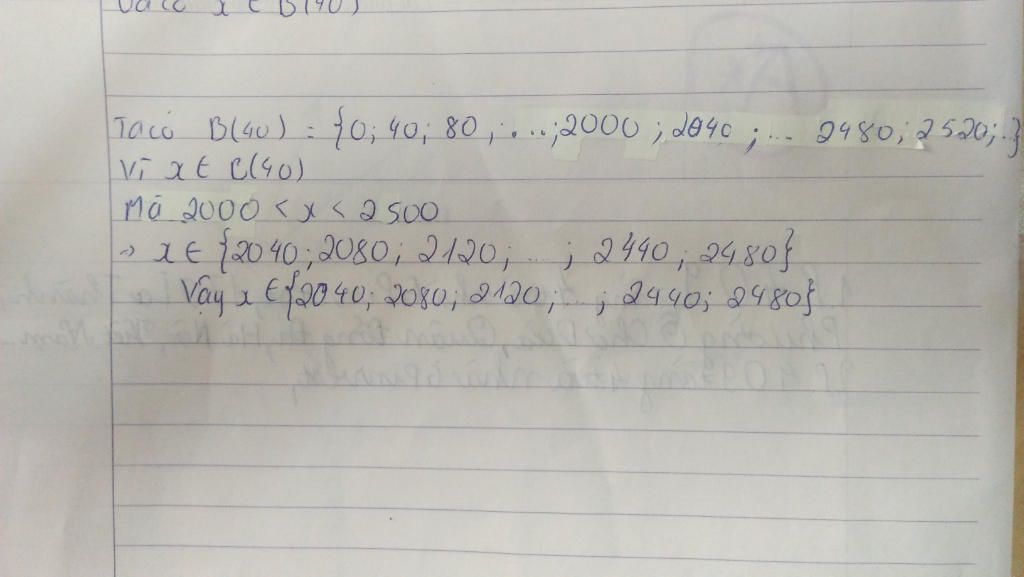 và có x ∈ B(40)
Ta có B(40) = {0; 40; 80; ...; 2000; 2040; ... 2480; 2520; ..}
Vì x ∈ B(40)
Mà 2000 < x < 2500
→ x ∈ {2040; 2080; 2120; ...; 2440; 2480}
Vậy x ∈ {2040; 2080; 2120; ...; 2440; 2480}